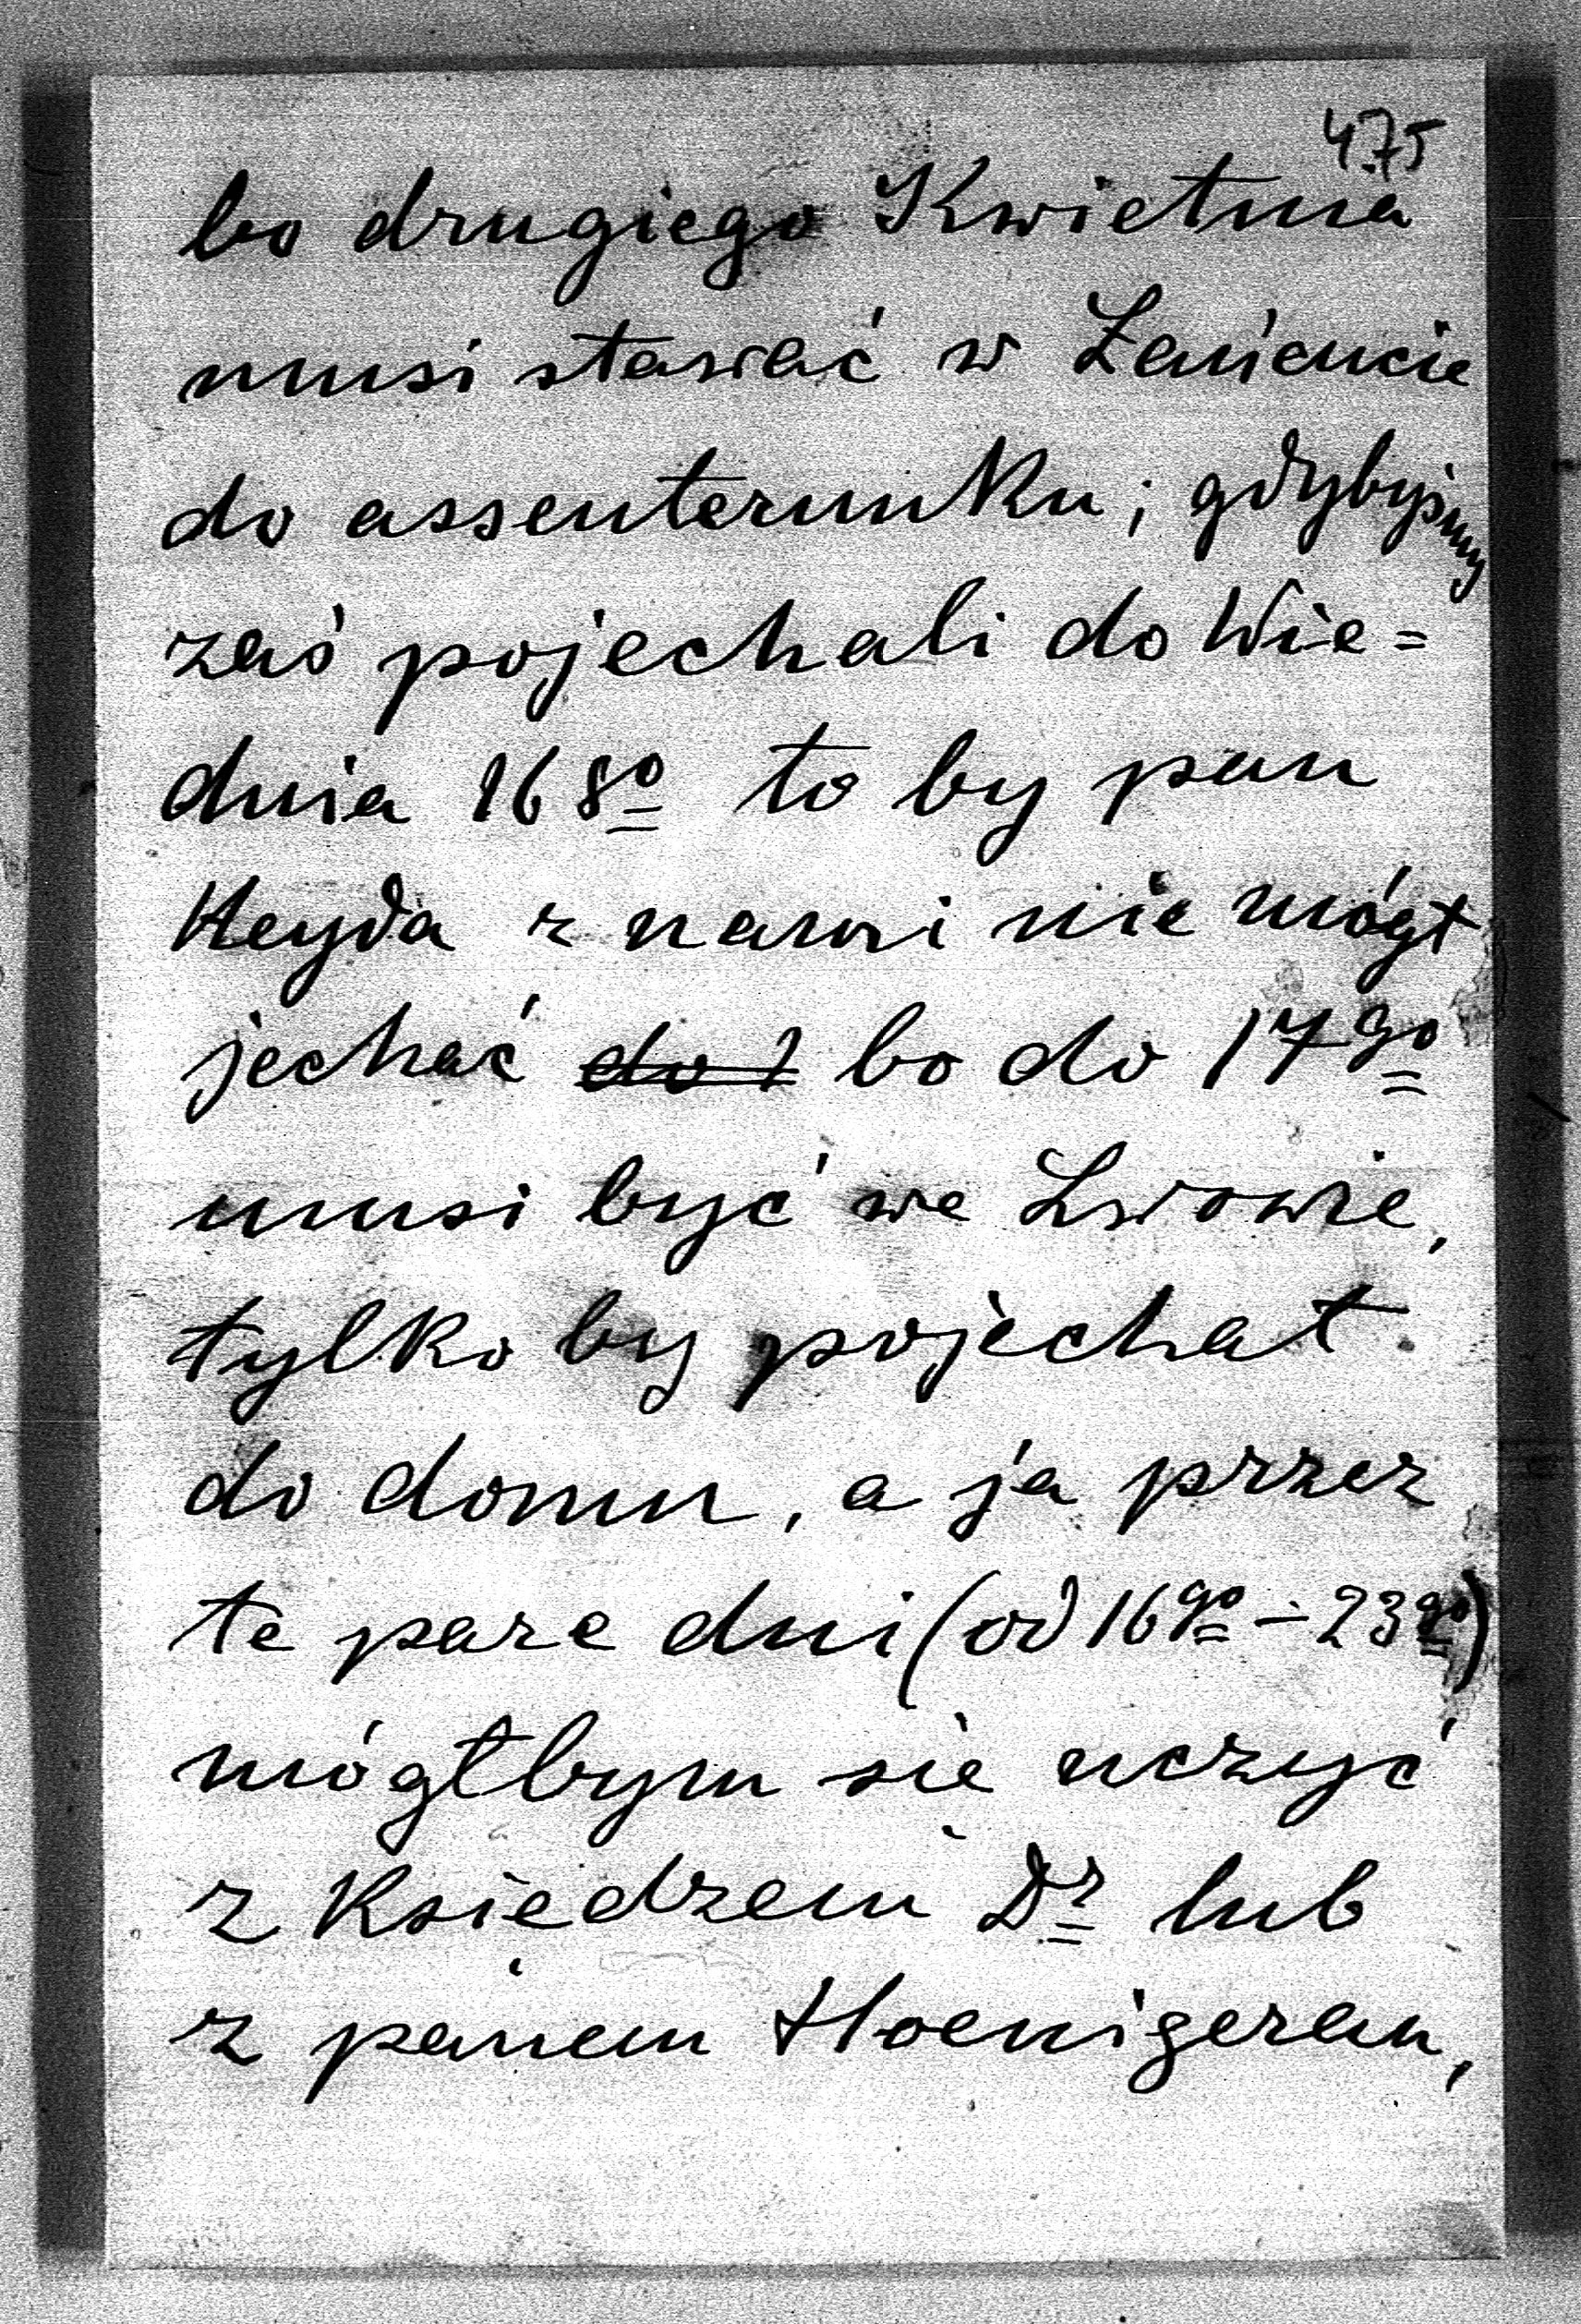 475
bo drugiego Kwietnia
musi stawać w Łańcucie
do assenterunku; gdybyśmy
zaś pojechali do Wie=
dnia 16 go to by pan
Heyda z nami nie mógł
jechać do 1 bo do 17 go
musi być we Lwowie,
tylko by pojechał
do domu, a ja przez
te pare dni (od 16 go - 23 go)
mógłbym się uczyć
z Księdzem Dr lub
z panem Hoenigerem,